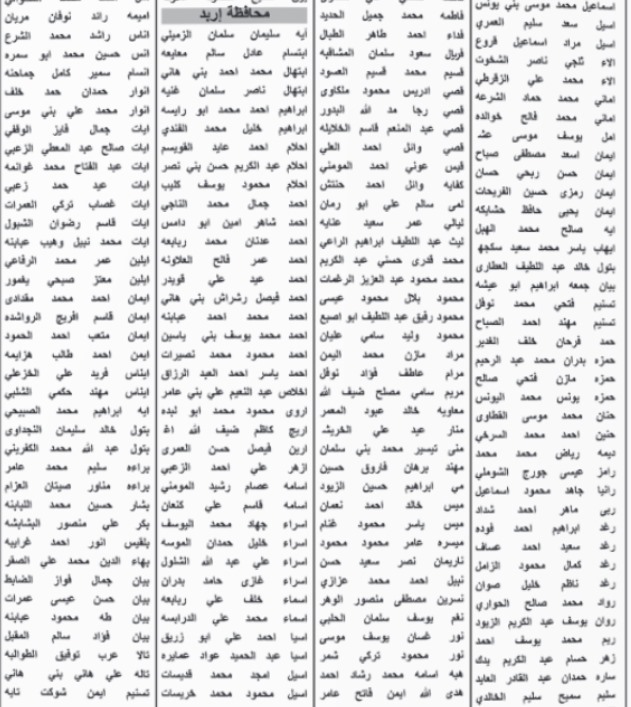 اسماعيل محمد موسى بني يونس
اسيل سعد سليم العمري
اسيل مراد اسماعيل قروع
الاء ثلجي ناصر الشخوت
الاء محمد علي الزقرطي
اماني محمد حماد الشرعه
اماني محمد فالح خوالده
امل يوسف موسى
ايمان اسعد مصطفى صباح
ايمان حسن ربحي حسان
ايمان رمزي حسين الفريحات
ايمان يحيى حافظ حشايكه
ايه صالح محمد الهبل
ايهاب ياسر محمد سعيد سكجها
بتول خالد عبد اللطيف العطاري
بيان جمعه ابراهيم ابو عيشه
تسنيم فتحي محمد نوفل
تسنيم مهند احمد الصباح
حمد فرحان خلف الغدير
حمزه بدران محمد عبد الرحيم
حمزه مازن فتحي صالح
حمزه يونس محمد اليونس
حنان محمد موسى القطاوي
حنين احمد محمد السرخي
ديمه رياض محمد محمد
رامز عيسى جورج الشوملي
رانيا جاهد محمود اسماعيل
ربى ماهر احمد شداد
رغد ابراهيم احمد فوده
رغد سعيد احمد عساف
رغد كمال محمود الزامل
رغد ناظم خليل صوان
رواد محمد صالح الحواري
روان يوسف عبد الكريم الزيود
ريم محمد يوسف احمد
زهر حسام عبد الكريم يدك
ساره حمدان عبد القادر العايد
سليم سميح سليم الخالدي
فاطمه محمد جميل الحديد
فداء احمد طاهر الطبال
فريال سعود سلمان المشاقبه
قسيم محمد قسيم العمود
قصي ادريس محمود ملكاوي
قصي رجا مد الله البدور
قصي عبد المنعم قاسم الخلايله
قصي وائل احمد العلي
قيس عوني احمد المومني
كفايه وائل احمد حنتش
لمى سالم علي ابو رمان
ليالي عمر سعيد عنابه
ليث عبد اللطيف ابراهيم الراعي
محمد قدري حسني عبد الكريم
محمد محمود عبد العزيز الرغمات
محمود بلال محمود عيسى
محمود رفيق عبد اللطيف ابو اصبع
محمود وليد سامي عليان
مراد مازن محمد اليمن
مرام عاطف فؤاد نوفل
مريم سامي مصلح ضيف الله
معاويه خالد عبود المعمر
منار عيد علي الخريشه
منى تيسير محمد بني سلمان
مهند برهان فاروق حسين
مي ابراهيم حسين الزيود
ميس خالد احمد نعمان
ميس ياسر محمود غنام
ميسره عامر محمود محمود
ناريمان نصر سعيد حسن
نبيل احمد محمد عزازي
نسرين مصطفى منصور الوهر
نغم يوسف سلمان الحلبي
نور غسان يوسف موسى
نور محمود تركي شمر
هبه اسامه محمد رشاد احمد
هدى الله ايمن فاتح عامر
محافظة إربد
آيه سليمان سلمان الزميتي
ابتسام عادل سالم معايعه
ابتهال محمد احمد بني هاني
ابتهال ناصر سلمان غنيه
ابراهيم احمد محمد ابو رايسه
ابراهيم خليل محمد الفندي
احلام احمد عايد القويسم
احلام عبد الكريم حسن بني نصر
احلام محمود يوسف كليب
احمد جمال محمد التاجي
احمد شاهر امين ابو دامس
احمد عدنان محمد ربابعه
احمد عمر فالح العلاونه
احمد عيد علي قويدر
احمد فيصل رشراش بني هاني
احمد محمد احمد عبابنه
احمد محمد يوسف بني ياسين
احمد محمود محمد نصيرات
احمد ياسر احمد العبد الرزاق
اخلاص عبد النعيم علي بني عامر
اروى محمود محمد ابو لبده
اريج كاظم ضيف الله
ارين فيصل حسن العمري
ازهر علي احمد الزعبي
اسامه عصام رشيد المومني
اسامه قاسم علي كنعان
اسراء جهاد محمد اليوسف
اسراء خليل حمدان الموسه
اسراء علي عبد الله الشلول
اسراء غازي حامد بدران
اسماء خلف علي ربابعه
اسماء محمد علي الدرابسه
اسيا احمد علي ابو زريق
اسيا عبد الحميد عواد عمايره
اسيل امجد محمد قديسات
اسيل محمود محمد خريسات
اميمه رائد نوفان مريان
اناس راشد محمد الشرع
انس حسين محمد ابو سمره
انسام سمير كامل جماحنه
انوار حمدان حمد خلف
انوار محمد علي بني موسى
ايات جمال فايز الوقفي
ايات صالح عبد المعطي الزعبي
ايات عبد الفتاح محمد غوانمه
ايات عيد حمد زعبي
ايات غصاب تركي العمرات
ايات قاسم رضوان الشبول
ايات محمد نبيل وهيب عبابنه
ايلين عمر محمد الرفاعي
ايلين معتز صبحي يغمور
ايمان احمد محمد مقدادي
ايمان قاسم افريج الرواشده
ايمان متعب احمد الحمود
ايمن احمد طالب هزايمه
ايناس فريد علي الخزعلي
ايناس مهند حكمي الشلبي
ايه ابراهيم محمد الصبيحي
بتول خالد سليمان النجداوي
بتول عبد الله محمد الكفريني
براءه سليم محمد عامر
براءه مناور صيتان العزام
بشار حسين محمد اللبابنه
بكر علي منصور البشابشه
بلقيس انور احمد غرايبه
بهاء الدين محمد علي الصقر
بيان جمال فواز الضابط
بيان حسن عيسى عمرات
بيان طه محمود عبابنه
بيان فؤاد سالم المقبل
تالا عرب توفيق الطوالبه
تاله علي هاني بني هاني
تسنيم ايمن شوكت تايه